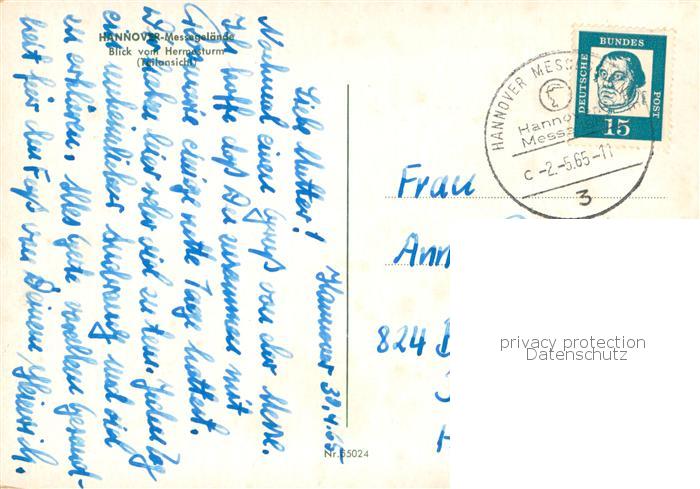 HANNOVER-Messegelände
Blick vom Hermesturm
(Teilansicht)
Hannover 30.4.65
Liebe Mutter!
Nochmal einen Gruß von der Messe.
Ich hoffe daß Du zusammen mit
einige nette Tage hattest.
Wir haben hier sehr viel zu tun. Jeden Tag
ein unheimlicher Andrang und viel
zu erklären. Alles Gute vor allem Gesund-
heit für Dich von Deinem Heinrich.
Nr. 55024
DEUTSCHE BUNDESPOST
15
HANNOVER MESSE
Hannover
Messe
c -2.-5.65-11
3
Frau
Ann
824 B
privacy protection
Datenschutz